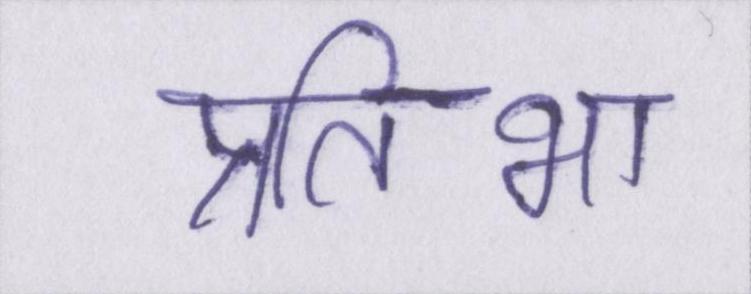 प्रतिभा